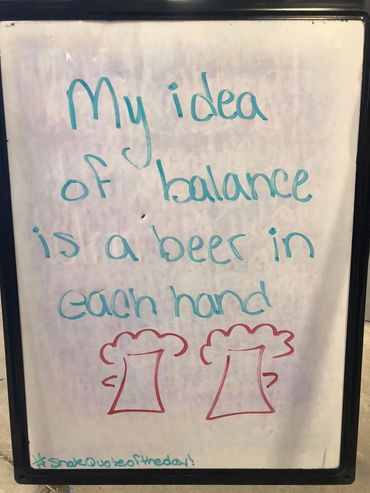 My idea
of balance
is a beer in
each hand
#SnakeQuoteoftheday!